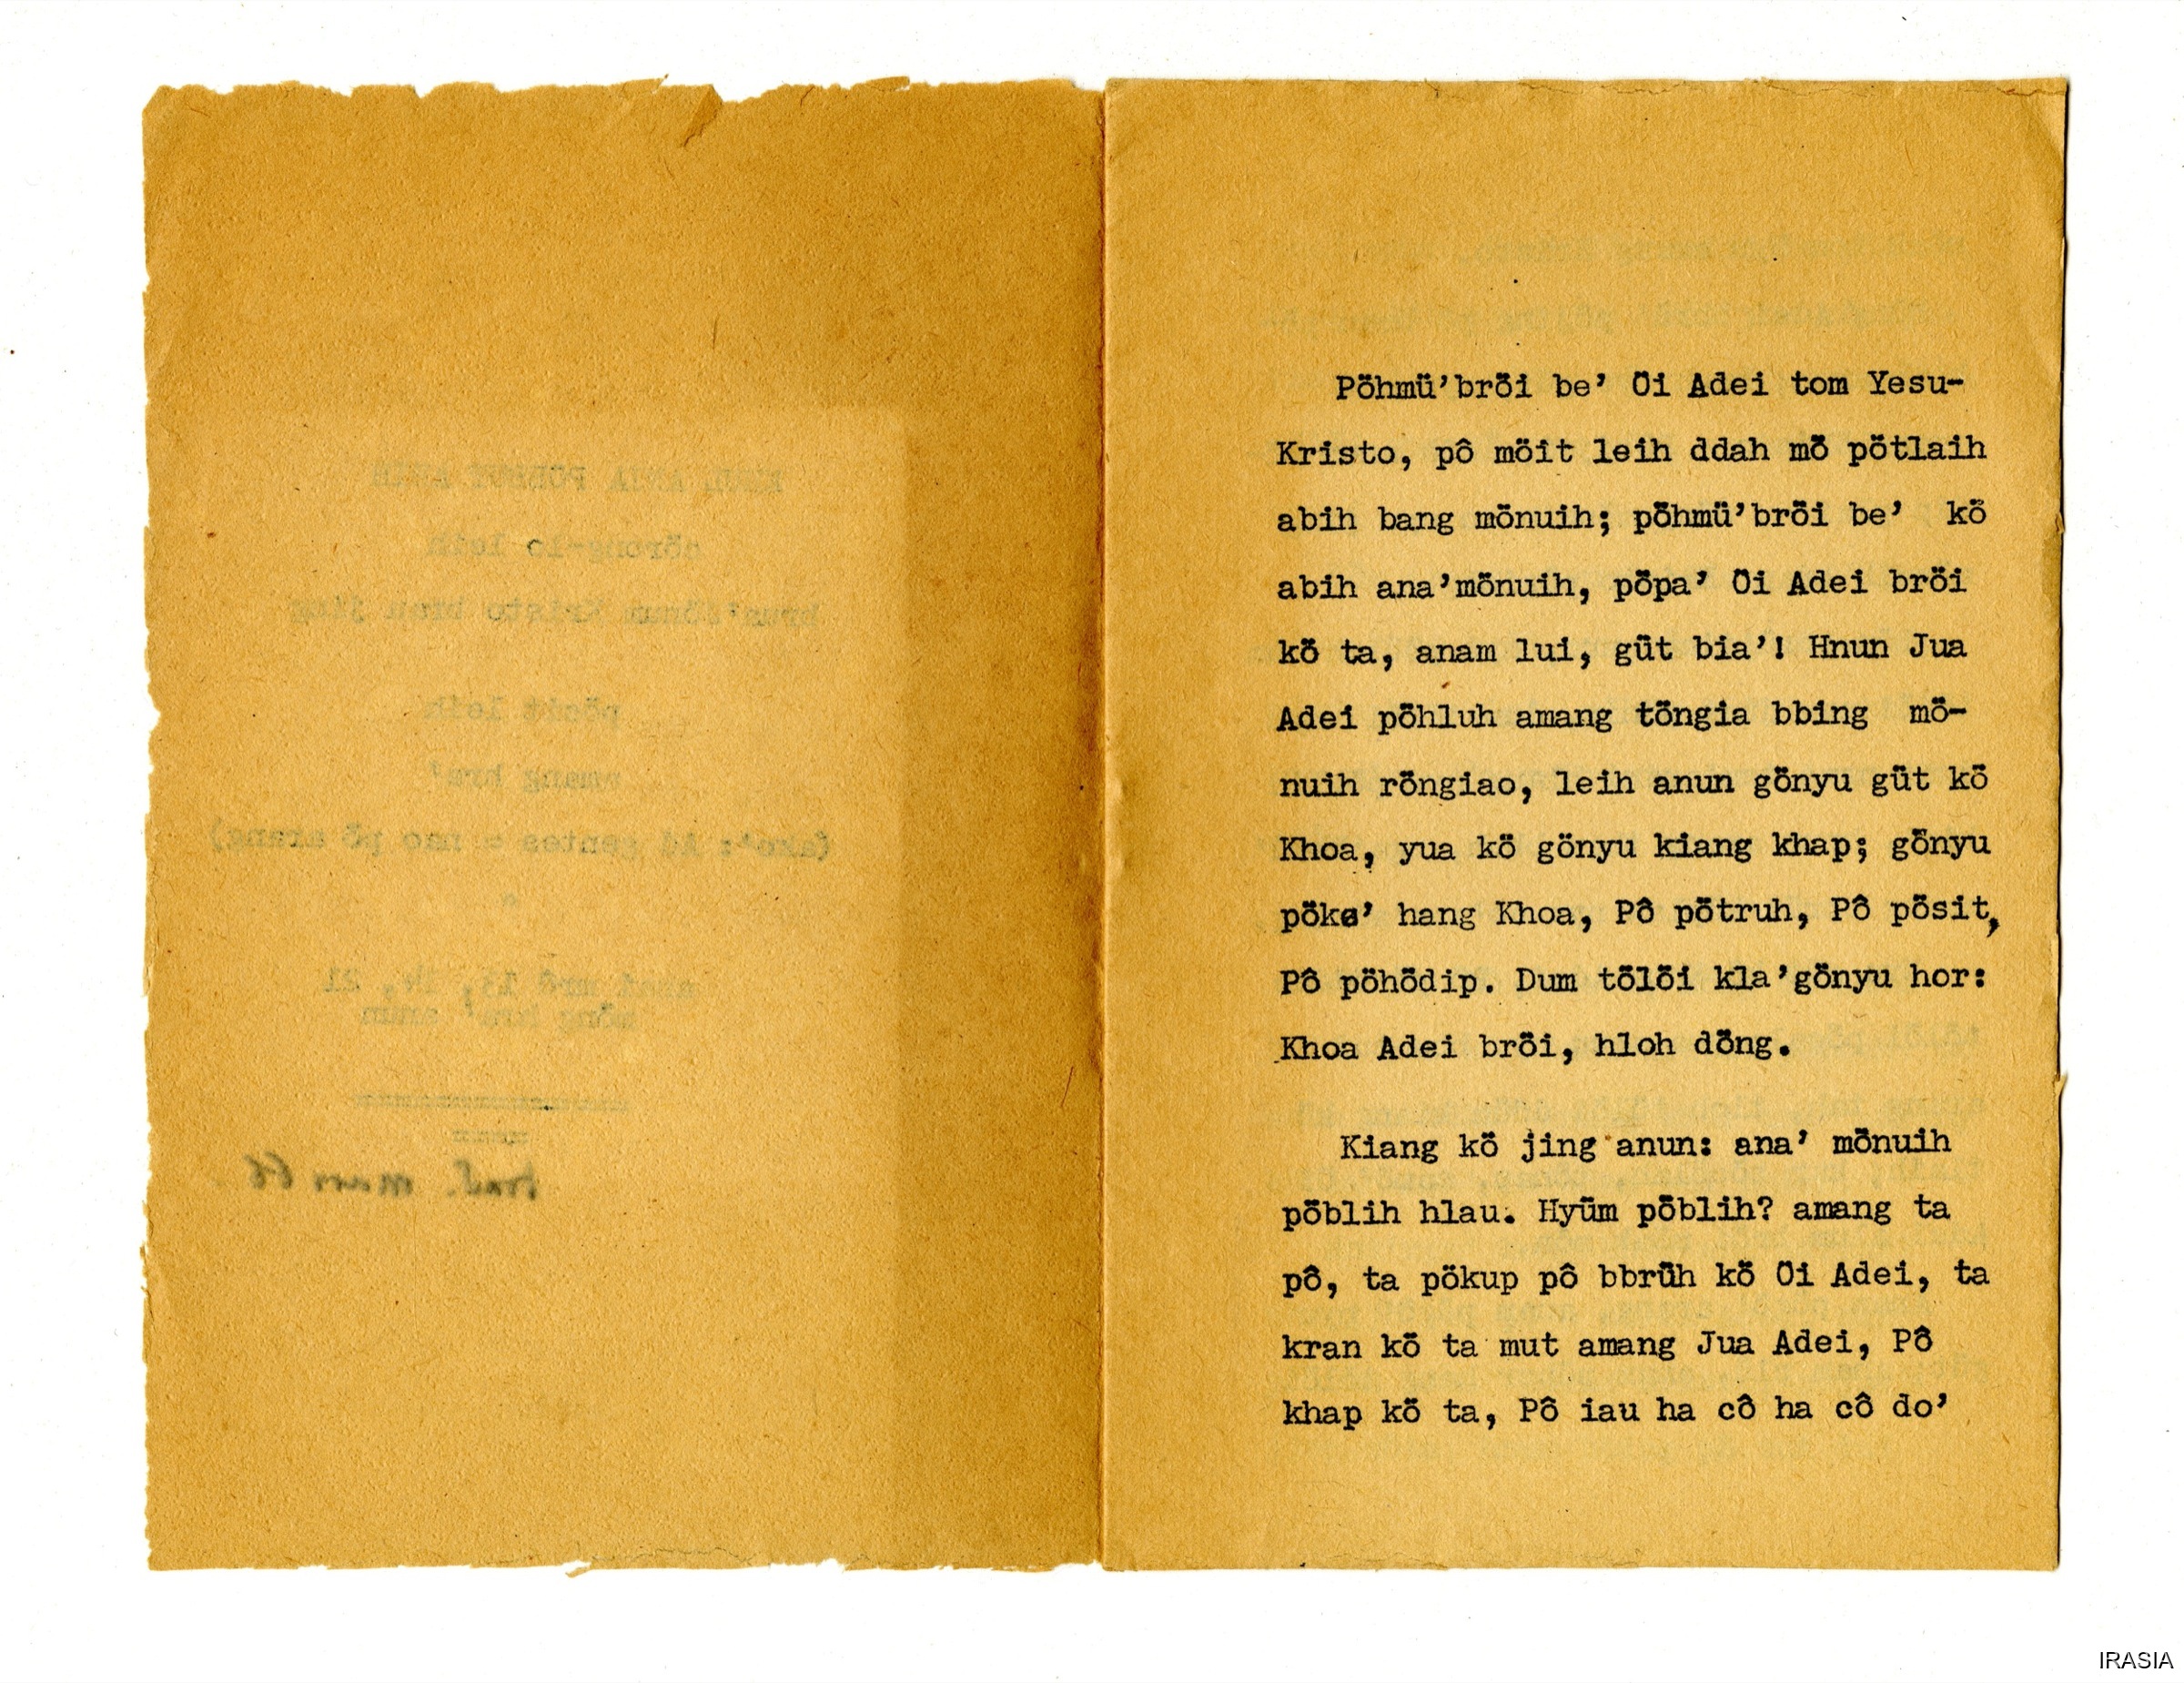 Pöhmü’bröi be’ Öi Adei tom Yesu-
Kristo, pô möit leih ddah mö pötlaih
abih bang mönuih; pöhmü’bröi be’ kö
abih ana’mönuih, pöpa’ Öi Adei bröi
kö ta, anam lui, güt bia’! Hnun Jua
Adei pöhluh amang töngia bbing mö-
nuih röngiao, leih anun gönyu güt kö
Khoa, yua kö gönyu kiang khap; gönyu
pöke’ hang Khoa, Pô pötruh, Pô pösit,
Pô pöhödip. Dum tölöi kla’gönyu hor:
Khoa Adei bröi, hloh döng.
Kiang kö jing anun: ana’ mönuih
pöblih hlau. Hyüm pöblih? amang ta
pô, ta pökup pô bbrüh kö Öi Adei, ta
kran kö ta mut amang Jua Adei, Pô
khap kö ta, Pô iau ha cô ha cô do’
IRASIA